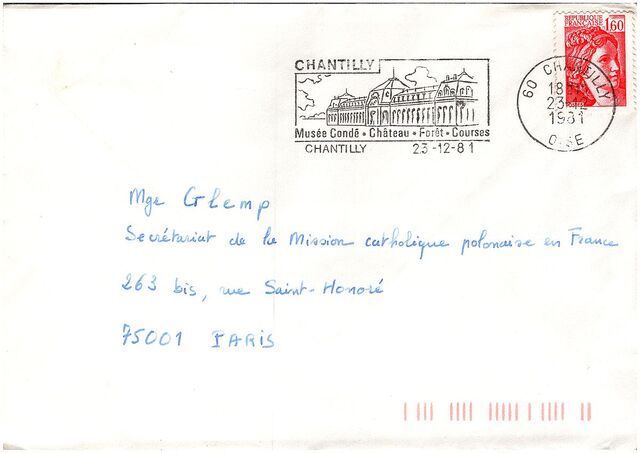 CHANTILLY
Musée Condé • Château • Forêt • Courses
CHANTILLY 23-12-81
RÉPUBLIQUE FRANÇAISE 1,60
60 CHANTILLY
18H
23-12
1981
OISE
Mgr Glemp
Secrétariat de la Mission catholique polonaise en France
263 bis, rue Saint-Honoré
75001 PARIS